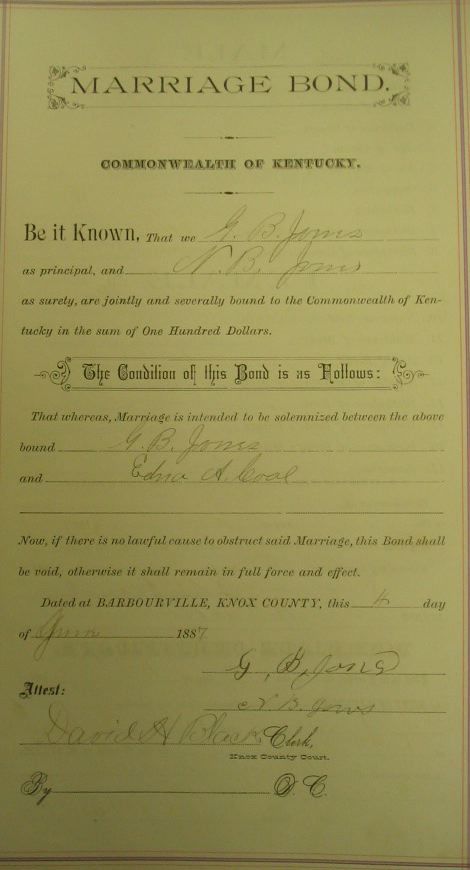 MARRIAGE BOND.
COMMONWEALTH OF KENTUCKY.
Be it Known, That we G. B. Jones
as principal, and N. B. Jones
as surety, are jointly and severally bound to the Commonwealth of Ken-
tucky in the sum of One Hundred Dollars.
The Condition of this Bond is as Follows:
That whereas, Marriage is intended to be solemnized between the above
bound G. B. Jones
and Edna A. Cool
Now, if there is no lawful cause to obstruct said Marriage, this Bond shall
be void, otherwise it shall remain in full force and effect.
Dated at BARBOURVILLE, KNOX COUNTY, this 4 day
of June 1887
G. B. Jones
Attest:
N. B. Jones
David H Black Clerk,
Knox County Court.
By D. C.